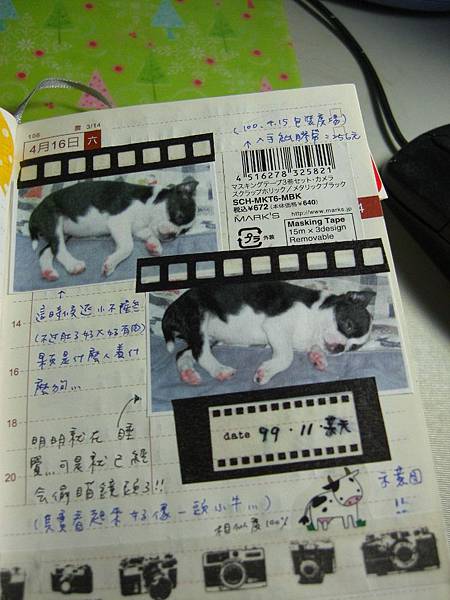 106
農 3/14
4月16日 六
(100.4.15 包裝廣場)
↑入手紙膠帶=256元
4 516278 325821
マスキングテープ3巻セット・カメラ
スクラップホリック/メタリックブラック
SCH-MKT6-MBK
税込¥672 (本体価格 ¥640)
MARK'S
http://www.marks.
プラ 外装
Masking Tape
15m x 3design
Removable
↑
這時候還小不隆咚
(不過肚子好大好有肉)
果真是什麼人養什
麼狗...
明明就在睡
覺...可是就已經
會偷瞄鏡頭了!!
(其實看起來好像一頭小牛...)
date 99.11.某天
相似度100%
示意圖
!!
14
16
18
20